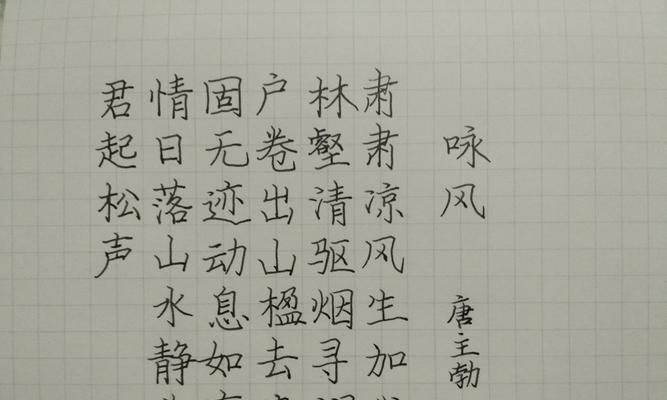 咏风
唐主勃
肃肃凉风生加
林壑清驱烟寻
户卷出山楹去
固无迹动息如
情日落山水静
君起松声